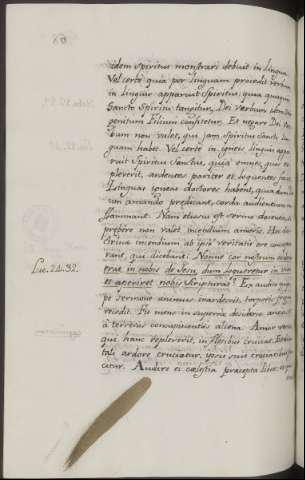 idem Spiritus monstrari debuit in lingua.
Vel certe quia per linguam procedit verbum
in linguis apparuit Spiritus; quia quisquis
Sancto Spiritu tangitur, Dei verbum idem
genitum Filium confitetur. Et negare Dei ver
bum non valet, qui jam Spiritus Sancti lin
guam habet. Vel certe in igneis linguis appa
ruit Spiritus Sanctus, quia omnes, quos re
pleverit, ardentes pariter et loquentes facit.
Linguas igneas doctores habent, quia dum De
um amando predicant, corda audientium in
flammant. Nam otiosus est sermo docentis, si
prebere non valet incendium amoris. Hoc do
ctrinæ incendium ab ipsius veritatis ore concepe
rant, qui dicebant. Nonne cor nostrum ardens
erat in nobis de Jesu, dum loqueretur in via
et aperiret nobis Scripturas? Ex audito quip
pe sermone animus inardescit, torporis frigus
recedit. Fit mens in superno desiderio anxia
a terrenis concupiscentiis aliena. Amor verus,
qui hanc repleverit, in fletibus cruciat. Et dum
tali ardore cruciatur, ipsis suis cruciatibus pas
citur. Audire ei cælestia præcepta libet. et quot
Luc. 24. 32.